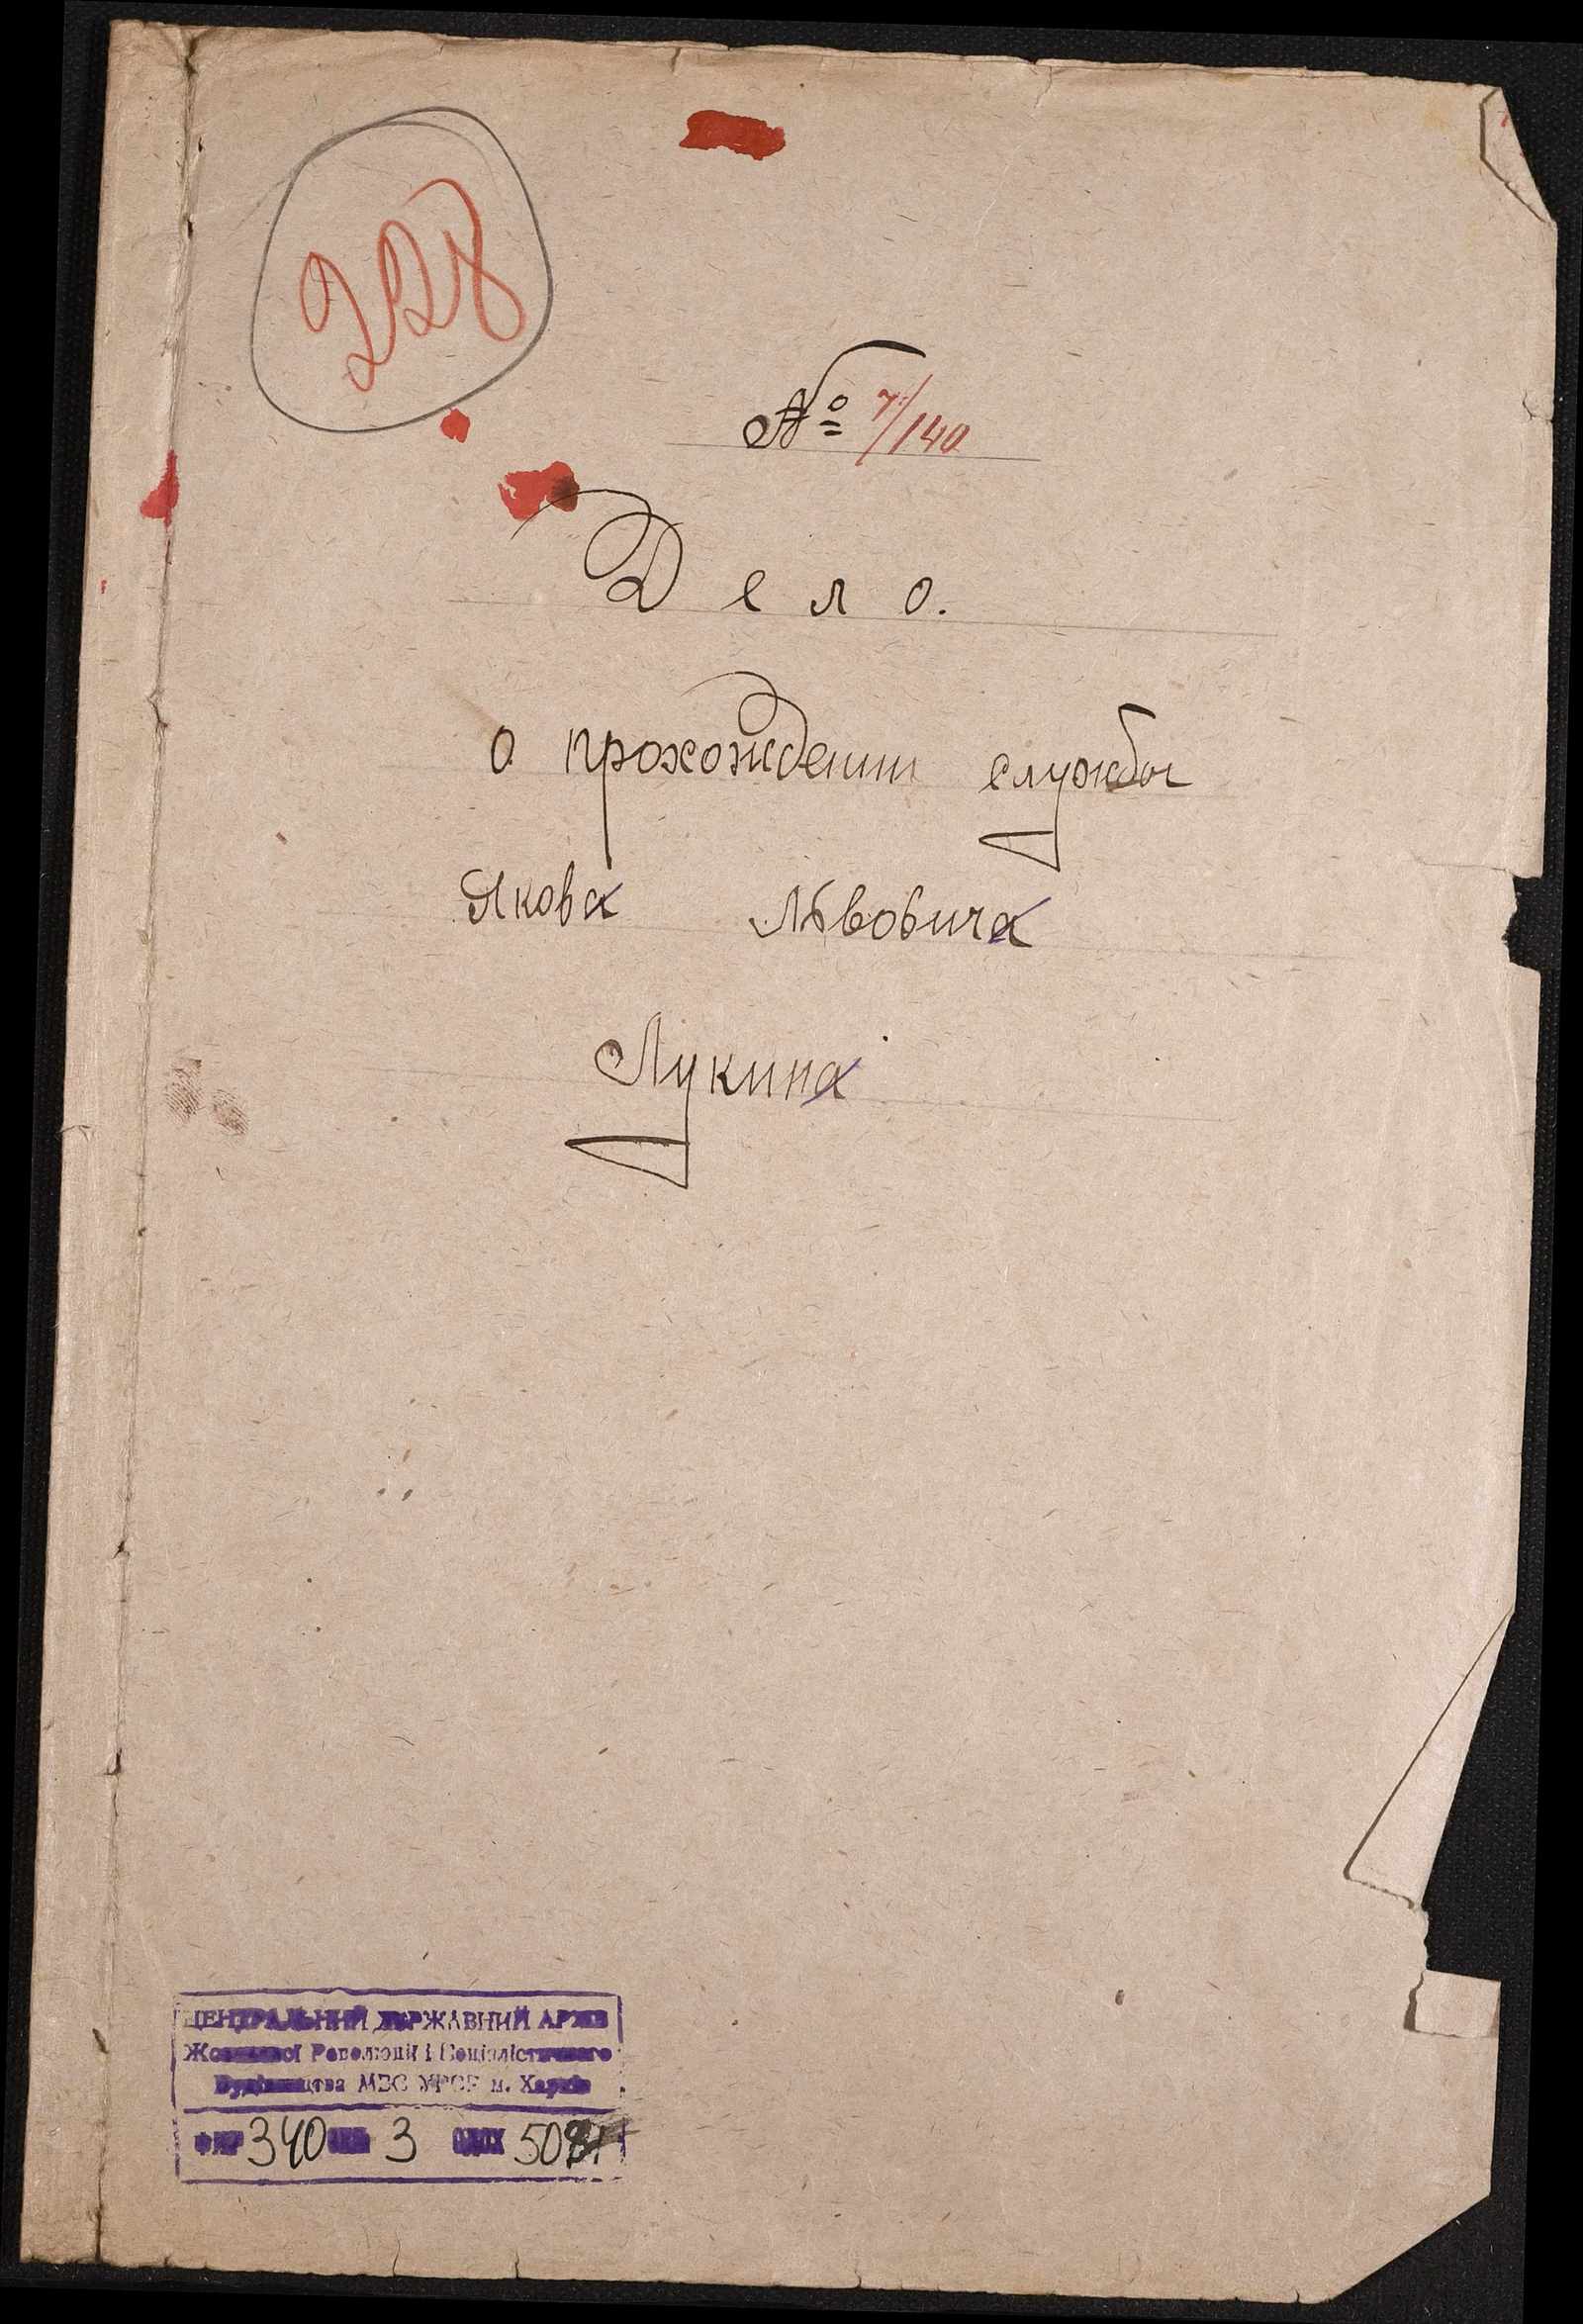 228
№ 7/140
Дело.
о прохождении службы
Якова Львовича
Лукина
ЦЕНТРАЛЬНИЙ ДЕРЖАВНИЙ АРХІВ
Жовтневої Революції і Соціалістичного
Будівництва МВС УРСР м. Харків
ФНР 340 ОПИС 3 ОДЗХ